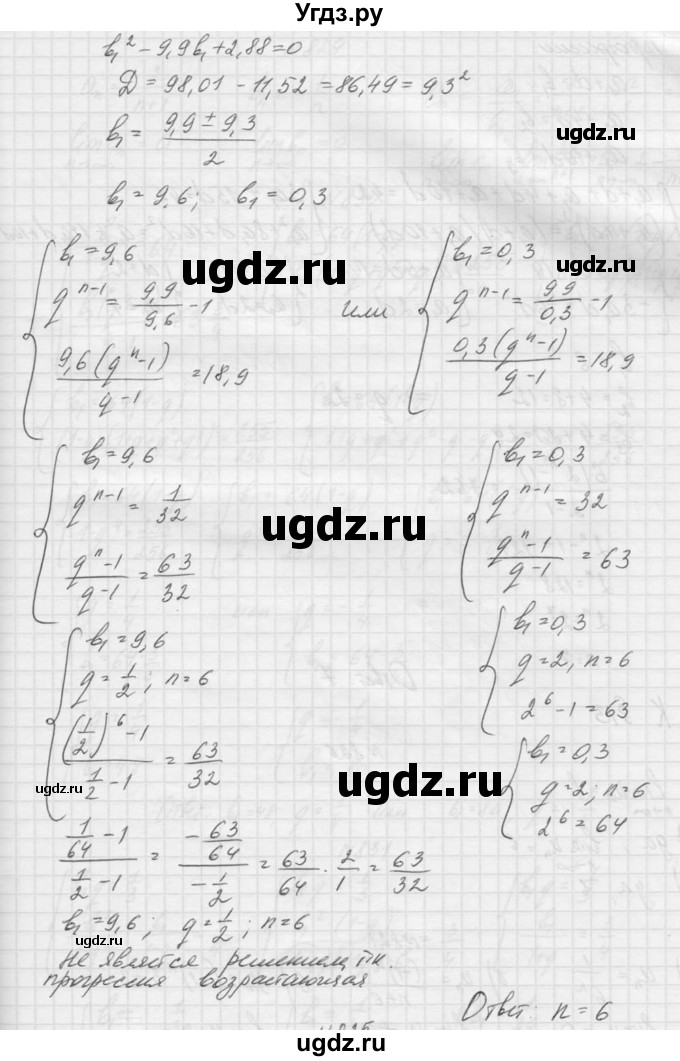 Угдз.ру
b₁² - 9,9b₁ + 2,88 = 0
Д = 98,01 - 11,52 = 86,49 = 9,3²
ugdz.ru
b₁ = (9,9 ± 9,3)/2
ugdz.ru
b₁ = 9,6; b₁ = 0,3
{ b₁ = 9,6
q^(n-1) = 9,9/9,6 - 1
9,6(qⁿ - 1)/(q - 1) = 18,9
ugdz.ru
или
{ b₁ = 0,3
q^(n-1) = 9,9/0,3 - 1
0,3(qⁿ - 1)/(q - 1) = 18,9
ugdz.ru
{ b₁ = 9,6
q^(n-1) = 1/32
(qⁿ - 1)/(q - 1) = 63/32
ugdz.ru
{ b₁ = 0,3
q^(n-1) = 32
(qⁿ - 1)/(q - 1) = 63
{ b₁ = 9,6
q = 1/2; n = 6
((1/2)⁶ - 1)/(1/2 - 1) = 63/32
{ b₁ = 0,3
q = 2, n = 6
2⁶ - 1 = 63
ugdz.ru
ugdz.ru
ugdz.ru
{ b₁ = 0,3
q = 2; n = 6
2⁶ = 64
(1/64 - 1)/(1/2 - 1) = (-63/64)/(-1/2) = 63/64 · 2/1 = 63/32
b₁ = 9,6; q = 1/2; n = 6
ugdz.ru
ugdz.ru
Не является решением, т.к.
прогрессия возрастающая
Ответ: n = 6
ugdz.ru